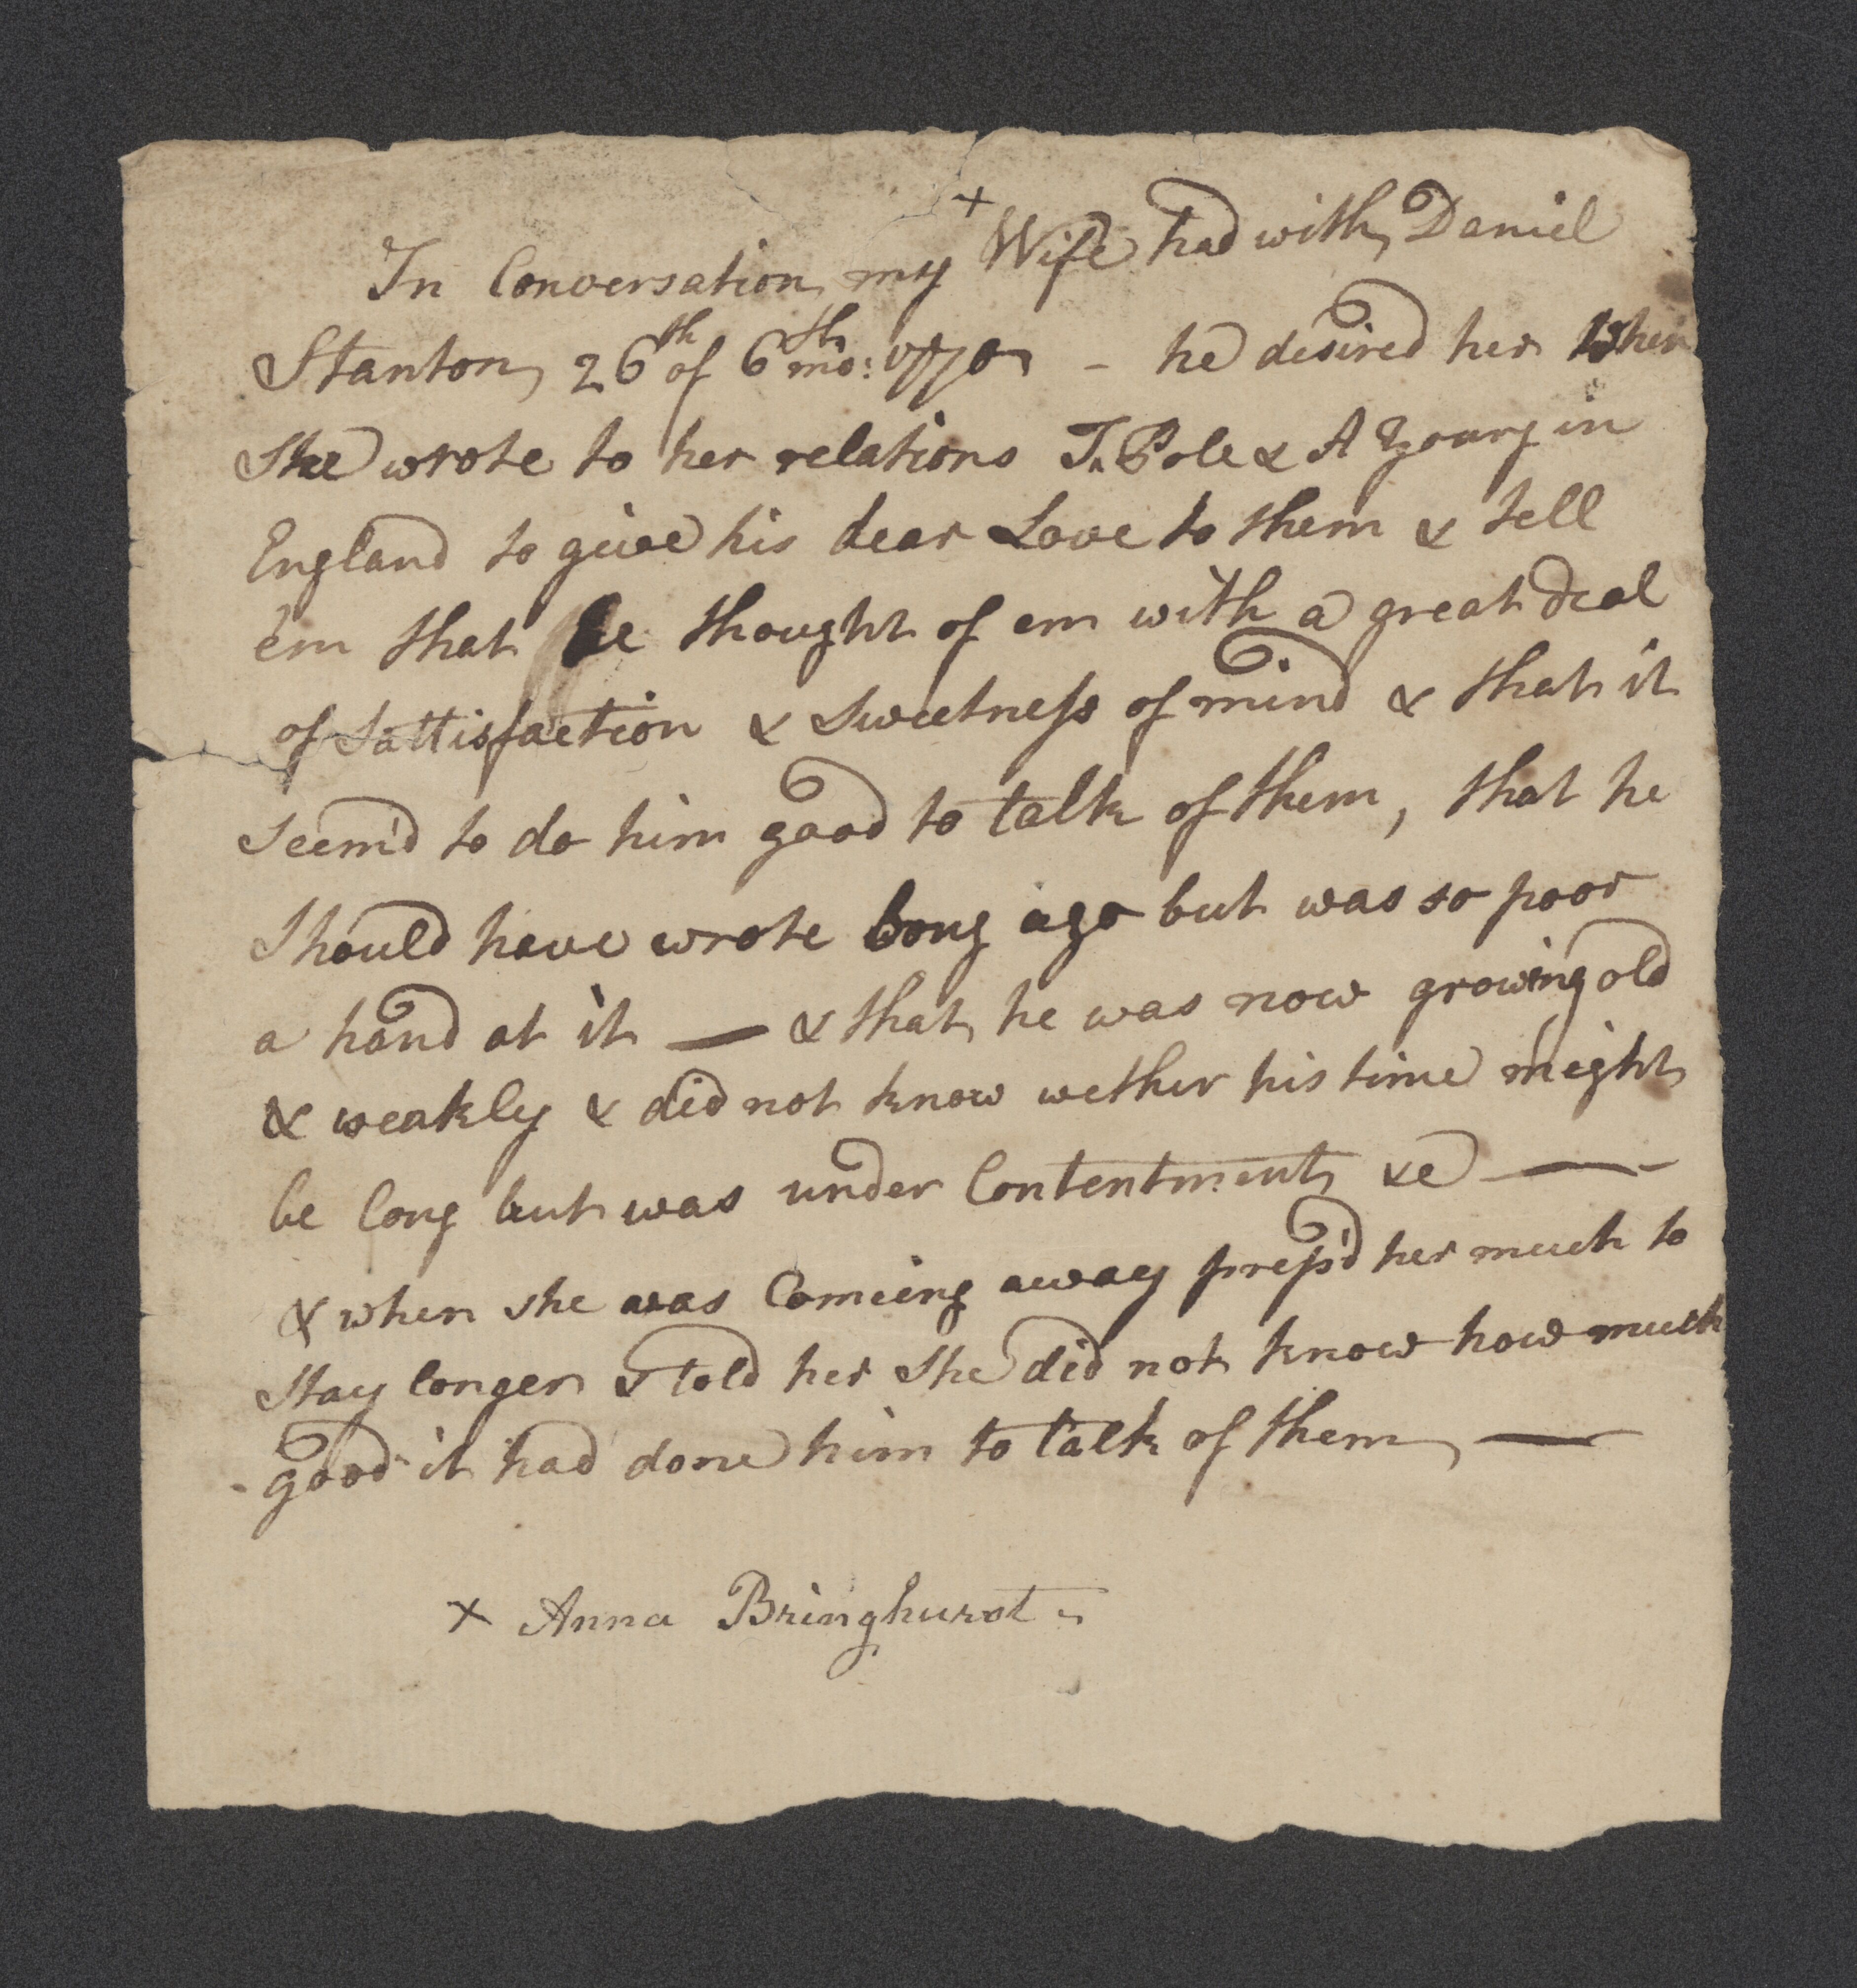 In Conversation my + Wife had with Daniel
Stanton 26th of 6th mo: 1770 - he desired her when
She wrote to her relations J. Pole & A Young in
England to give his dear Love to them & tell
em that he thought of em with a great deal
of Sattisfaction & Sweetness of mind & that it
Seem'd to do him good to talk of them, that he
Should have wrote long ago but was so poor
a hand at it — & that he was now growing old
& weakly & did not know wether his time might
be long but was under Contentment &c —
& when she was Comeing away press'd her much to
Stay longer & told her She did not know how much
good it had done him to talk of them —
+ Anna Bringhurst -